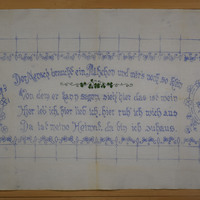 Der Mensch braucht ein Plätzchen und wär's noch so klein
Von dem er kann sagen sieh hier das ist mein
Hier leb ich, hier lieb ich, hier ruh ich mich aus
Da ist meine Heimat da bin ich zuhaus.